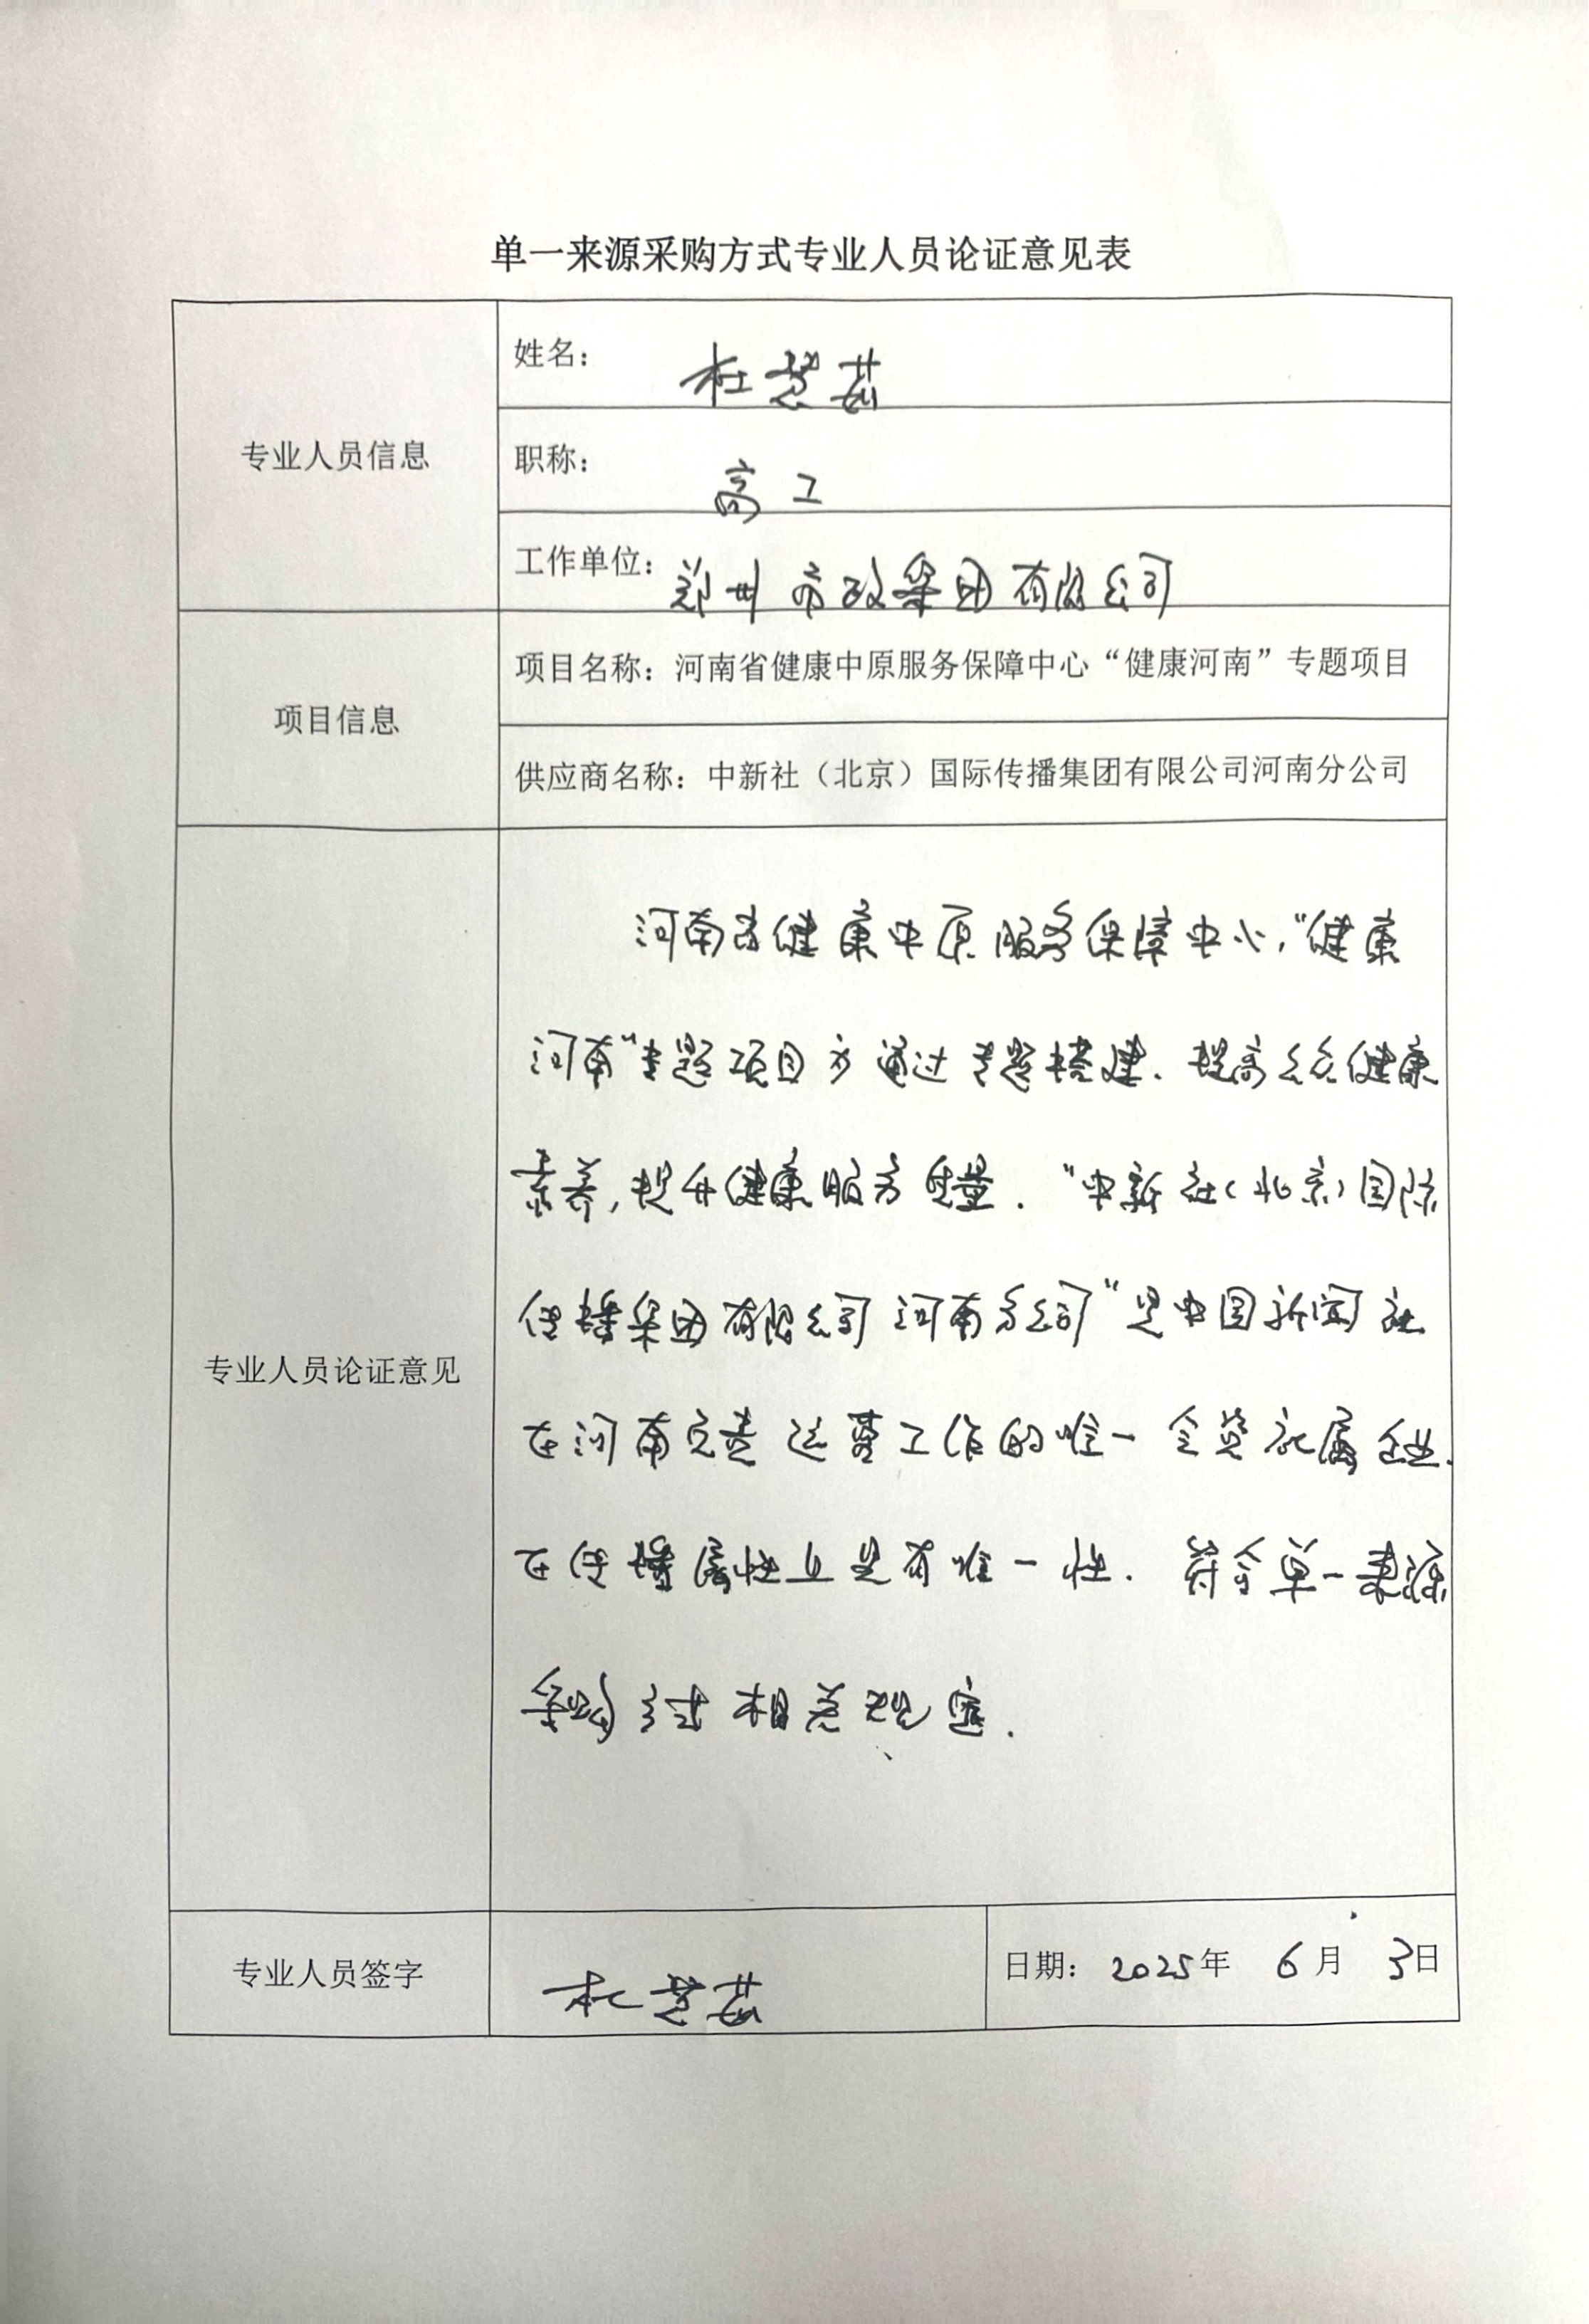 单一来源采购方式专业人员论证意见表
专业人员信息
姓名： 杜慧茹
职称： 高工
工作单位： 郑州市政集团有限公司
项目信息
项目名称：河南省健康中原服务保障中心“健康河南”专题项目
供应商名称：中新社（北京）国际传播集团有限公司河南分公司
专业人员论证意见
河南省健康中原服务保障中心,“健康
河南”专题项目为通过专题搭建.提高公众健康
素养,提升健康服务质量.“中新社(北京)国际
传播集团有限公司河南分公司”是中国新闻社
在河南负责运营工作的唯一全资私属企业.
在传播属性上是有唯一性.符合单一来源
采购方式相关规定.
专业人员签字
杜慧茹
日期： 2025年 6月 3日